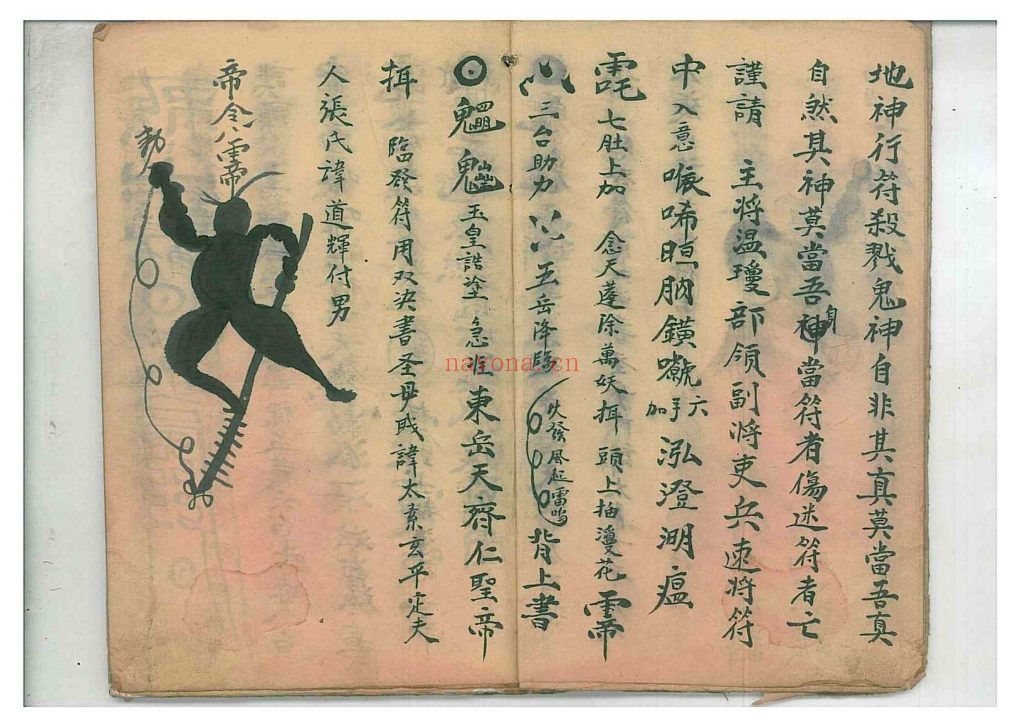 地神行符殺戮鬼神自非其真莫當吾真
自然其神莫當吾神身當符者傷迷符者亡
謹請 主將溫瓊部領副將吏兵速將符
中入意 㖠唏晅胸鐄 六手加 泓澄湖瘟
七肚上加 念天蓬除萬妖 揖 頭上插瓊花
三台助力 五岳降臨 火發風起雷鳴 背上書
玉皇誥塗 急往東岳天齊仁聖帝
揖 臨發符用双决書圣母戒諱太素玄平定夫
人張氏諱道輝付男
帝令
勅
nayona.cn